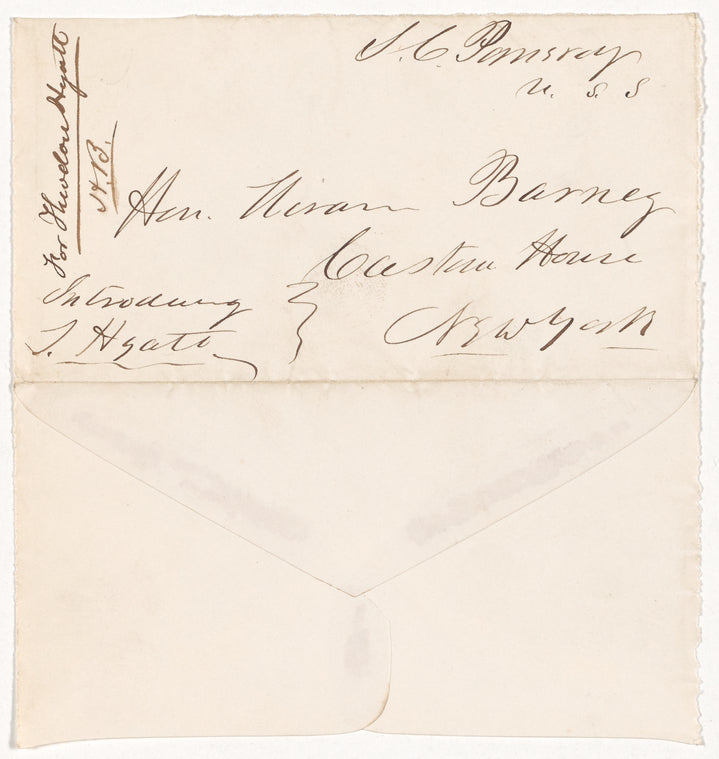 S. C. Pomeroy
U. S. S
Hon. Hiram Barney
Custom House
New York
Introducing
T. Hyatt
For Thaddeus Hyatt
H.B.